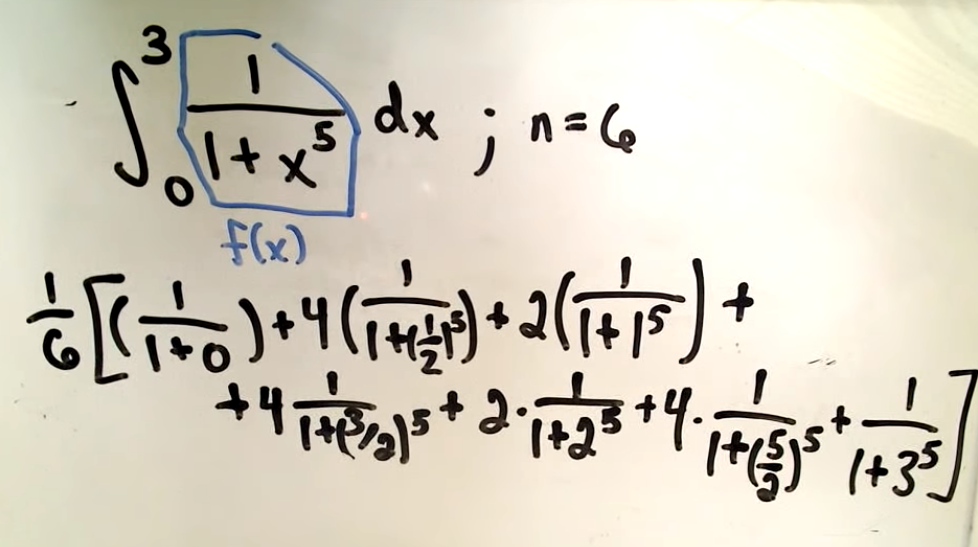 ∫₀³ 1/(1+x⁵) dx ; n=6
f(x)
1/6 [(1/(1+0)) + 4(1/(1+(1/2)⁵)) + 2(1/(1+1⁵)) +
+4 1/(1+(3/2)⁵) + 2·1/(1+2⁵) + 4·1/(1+(5/2)⁵) + 1/(1+3⁵)]